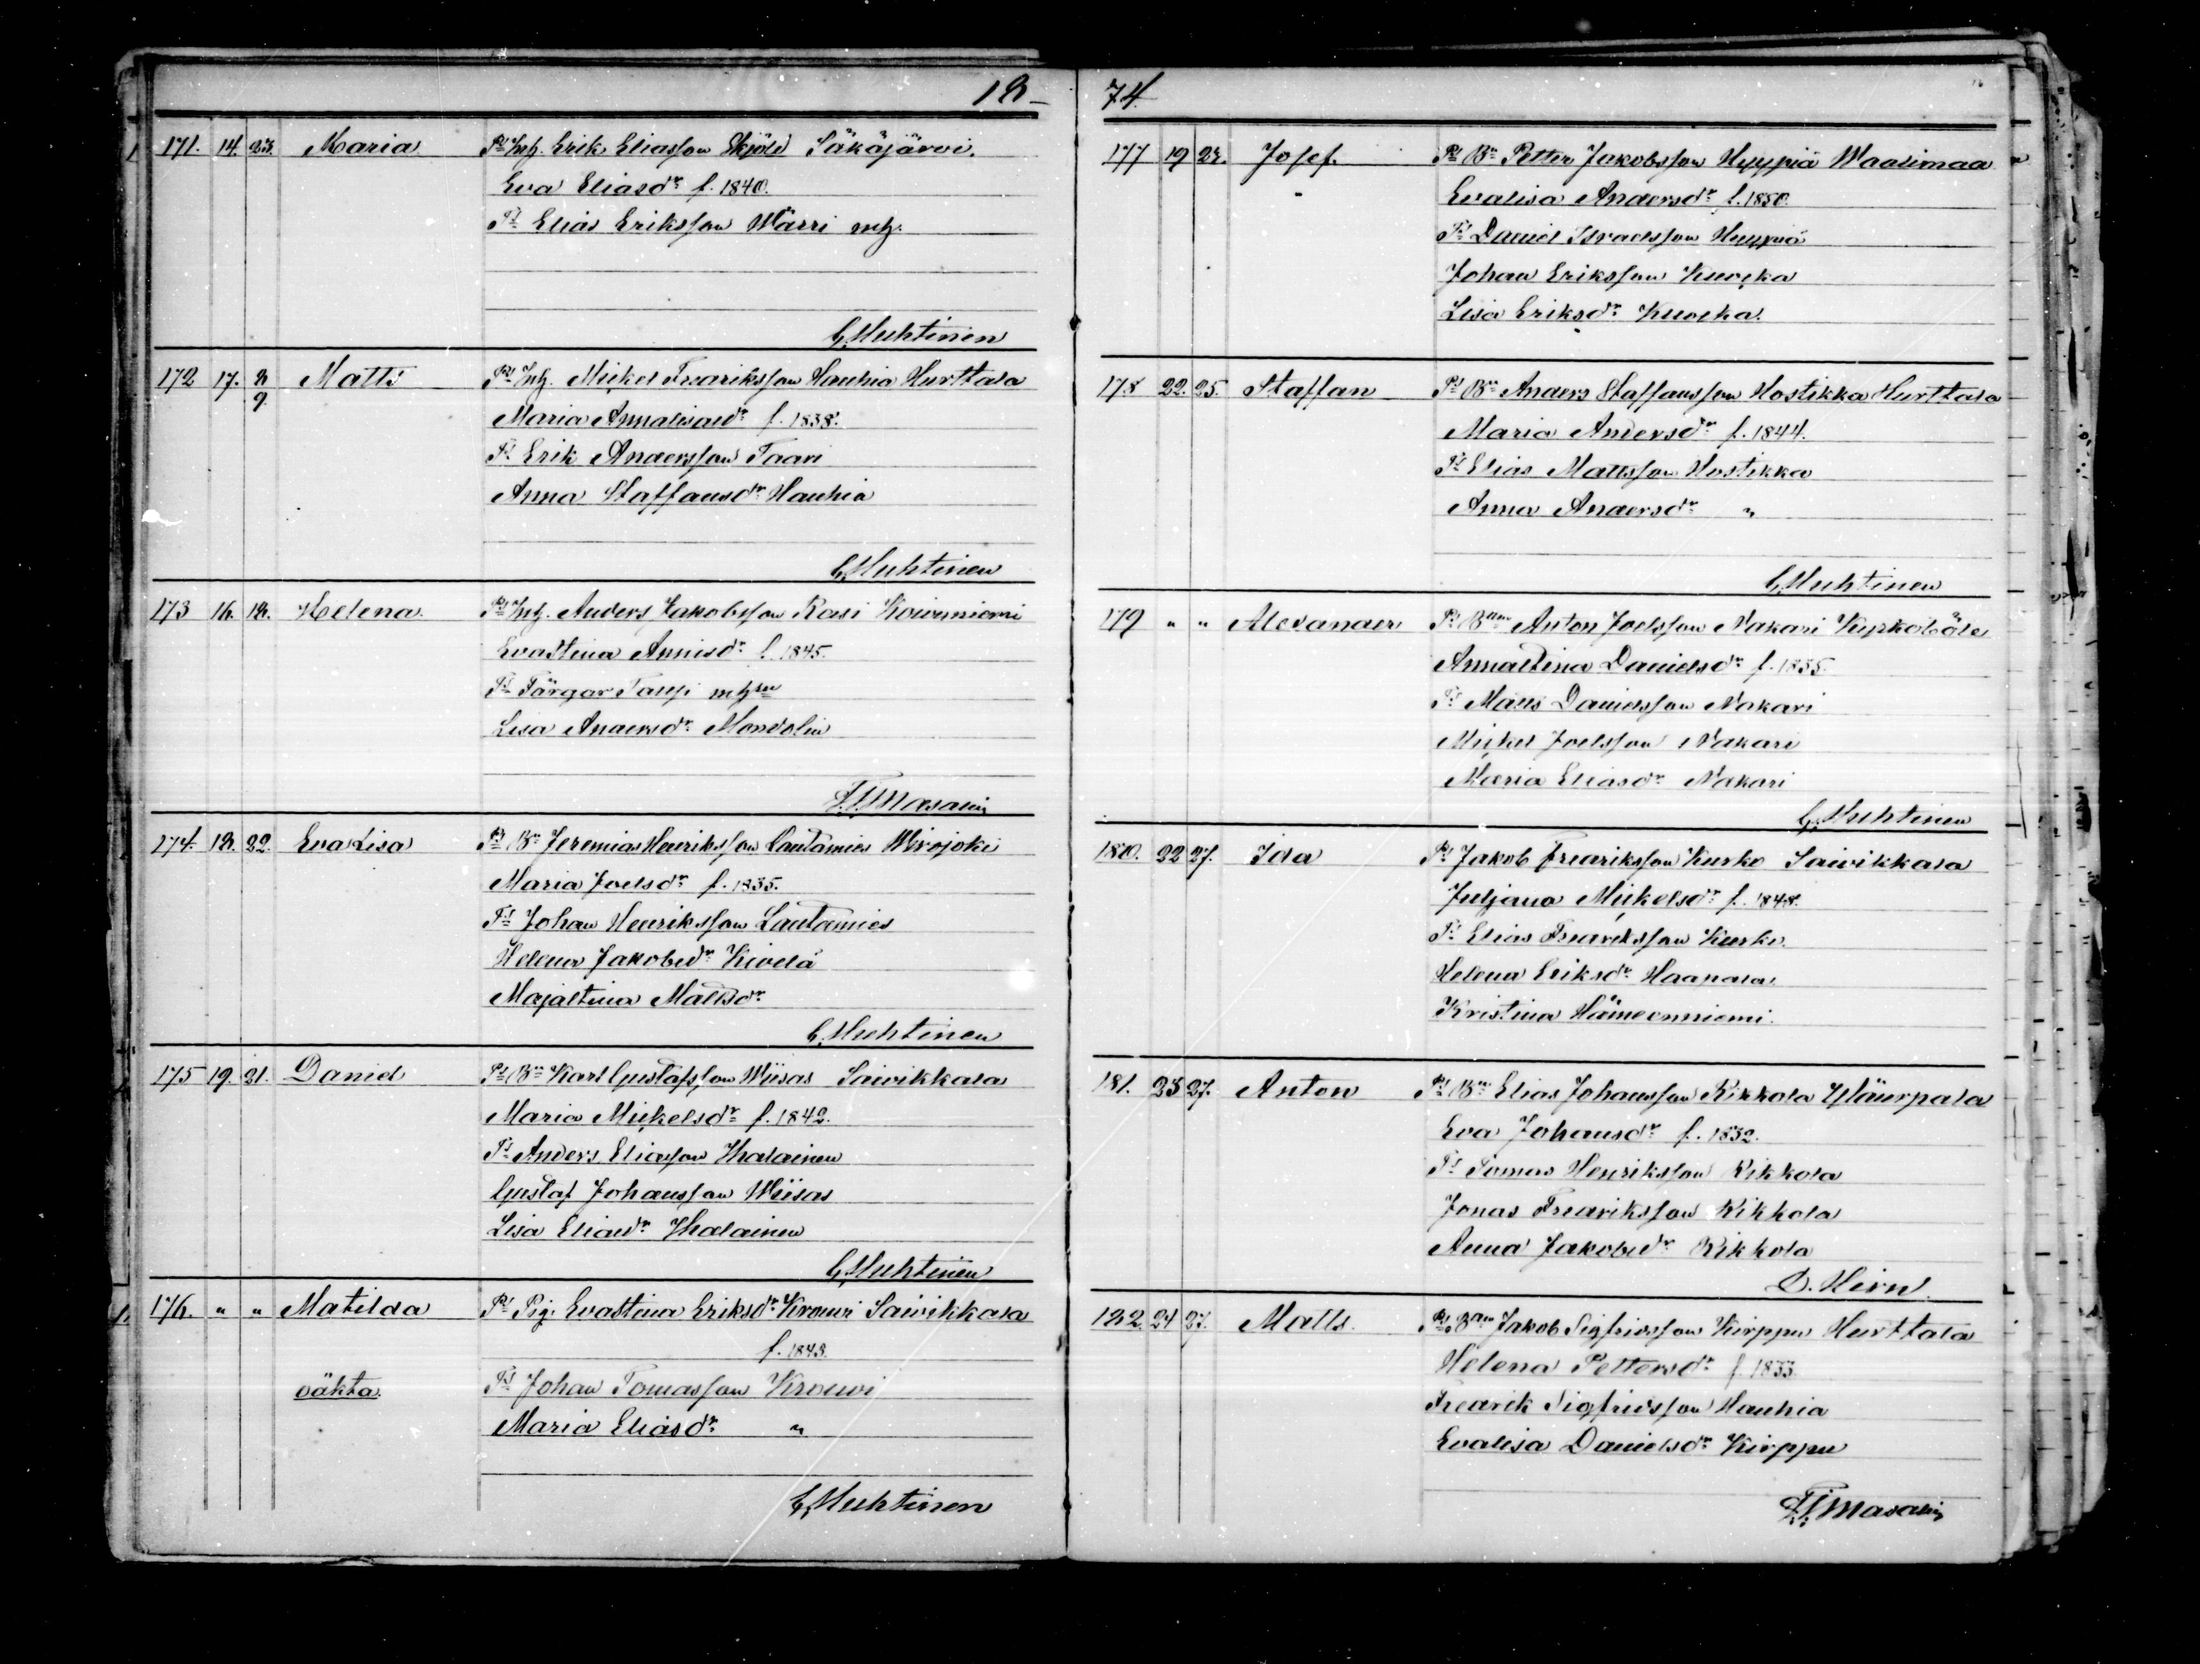 18
171. 14. 23. Maria Prs Inh. Erik Eliasson Skjöld Säkäjärvi.
Eva Eliasdr f. 1840.
Ts Elias Eriksson Wärri mh.
G. Muhtinen
172 17. Matts Prs Inh. Mickel Fredriksson Hauhia Hurttala
Maria Annalisaedr f. 1838.
Ts Erik Andersson Taari
Anna Staffansdr Hauhia
G. Muhtinen
173 16. 18. Helena Prs Inh. Anders Jakobsson Rasi Koivuniemi
Evastina Annisdr f. 1845.
Ts Färgar mhru
Lisa Andersdr Mondolin
F. J. Masalin
174. 18. 22. Eva Lisa Prs Bn Jeremias Henriksson Lautamies Wirojoki
Maria Joelsdr f. 1835.
Ts Johan Henriksson Lautamies
Helena Jakobsdr Kivelä
Majastina Mattsdr
G. Muhtinen
175 19. 21. Daniel Prs Bn Karl Gustafsson Wiisas Saivikkala
Maria Mickelsdr f. 1842.
Ts Anders Eliasson Ihalainen
Gustaf Johansson Wiisas
Lisa Eliasdr Ihalainen
G. Muhtinen
176. " " Matilda Prs Pig. Evastina Eriksdr Krouvi Saivikkala
f. 1843.
oäkta. Ts Johan Tomasson Krouvi
Maria Eliasdr "
G. Muhtinen
74.
177 19 Josef. Prs Bn Petter Jakobsson Hyypiä Waalimaa
Evalisa Andersdr f. 1850.
Ts Daniel Israelsson Hyypiä
Johan Eriksson Kuokka
Lisa Eriksdr Kuokka.
178 22. 25. Staffan Prs Bn Anders Staffansson Hostikka Hurttala
Maria Andersdr f. 1844.
Ts Elias Mattsson Hostikka
Anna Andersdr "
G. Muhtinen
179 " " Alexander Prs Bn Anton Joelsson Nakari Kyrkoböle
Annastina Danielsdr f. 1835.
Ts Matts Danielsson Nakari
Mickel Joelsson Nakari
Maria Eliasdr Nakari
G. Muhtinen
180. 22 27. Ida Prs Jakob Fredriksson Kurko Saivikkala
Juljana Mickelsdr f. 1848.
Ts Elias Fredriksson Kurko.
Helena Eriksdr Haapala.
Kristina Hämeenniemi.
181. 23 27. Anton Prs Bn Elias Johansson Kikkola Yläurpala
Eva Johansdr f. 1832.
Ts Tomas Henriksson Kikkola
Jonas Fredriksson Kikkola
Anna Jakobsdr Kikkola
D. Hirn.
182. 24 27. Matts. Prs Bn Jakob Sigfridsson Kirppu Hurttala
Helena Pettersdr f. 1833.
Fredrik Sigfridsson Hauhia
Evalisa Danielsdr Kirppu
F. J. Masalin